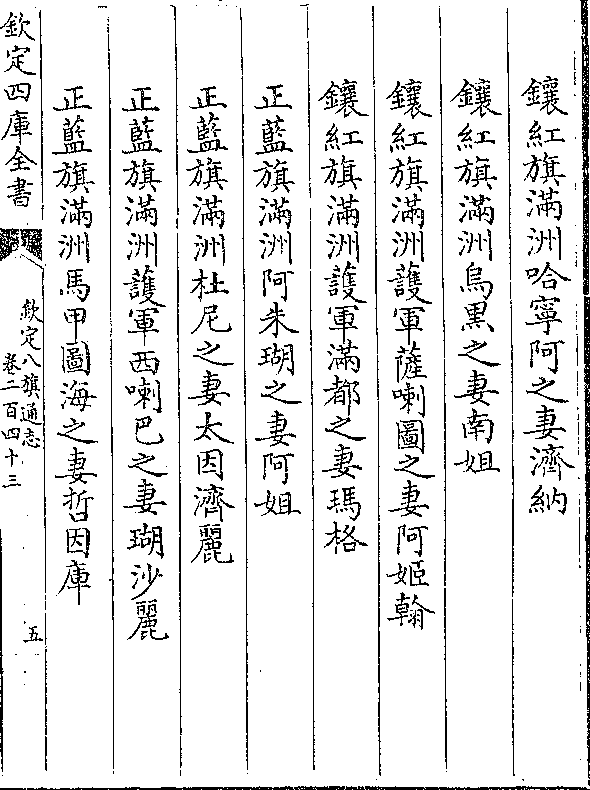 鑲紅旗滿洲哈寧阿之妻濟納
鑲紅旗滿洲烏黑之妻南姐
鑲紅旗滿洲護軍薩喇圖之妻阿姬翰
鑲紅旗滿洲護軍滿都之妻瑪格
正藍旗滿洲阿朱瑚之妻阿姐
正藍旗滿洲杜尼之妻太因濟麗
正藍旗滿洲護軍西喇巴之妻瑚沙麗
正藍旗滿洲馬甲圖海之妻哲因庫
欽定四庫全書
欽定八旗通志
卷二百四十三
五